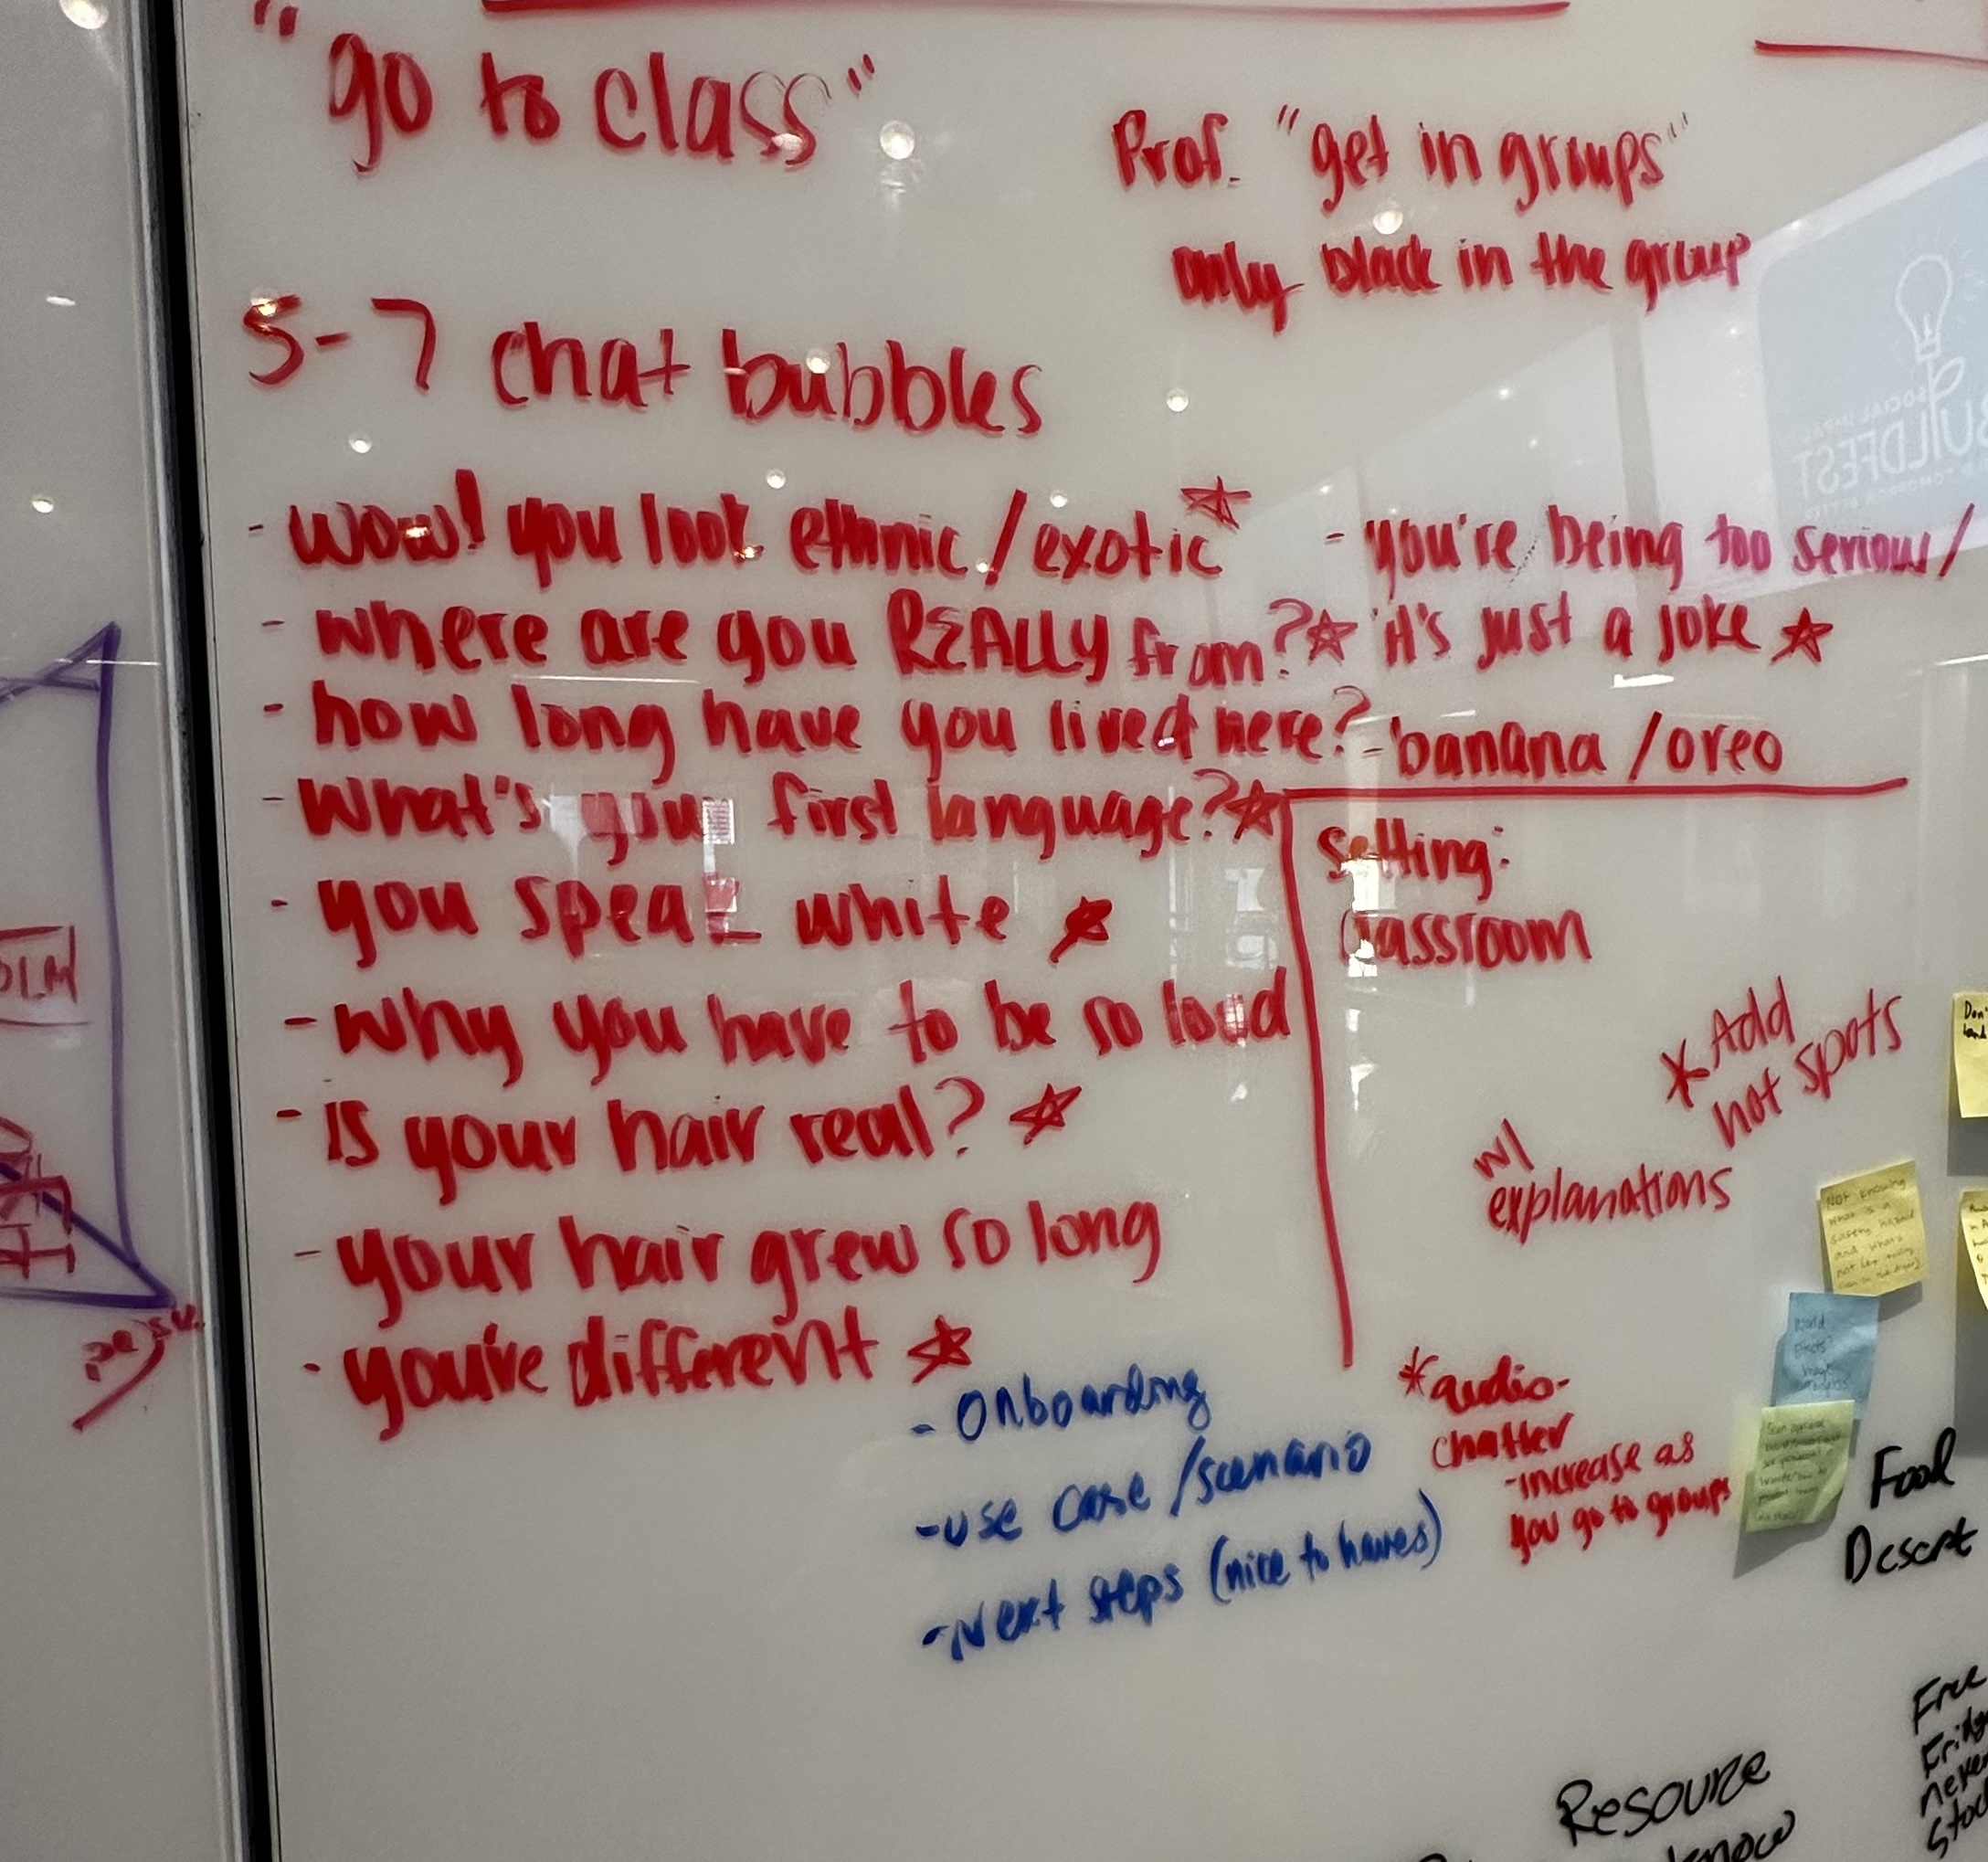 "go to class"
Prof. "get in groups"
only black in the group
5-7 chat bubbles
- wow! you look ethnic/exotic ☆
- where are you REALLY from? ☆
- how long have you lived here?
- What's your first language? ☆
- you speak white ☆
- why you have to be so loud
- is your hair real? ☆
- your hair grew so long
- you're different ☆
- you're being too serious/
it's just a joke ☆
- banana/oreo
Setting:
Classroom
* Add
hot spots
w/
explanations
- Onboarding
- use case/scenario
- Next steps (nice to haves)
* audio-
chatter
- increase as
you go to groups
Food
Desert
Resource
know
Free
SOCIAL IMPA
BUILDFEST
Not knowing
what is a
safety hazard
and what's